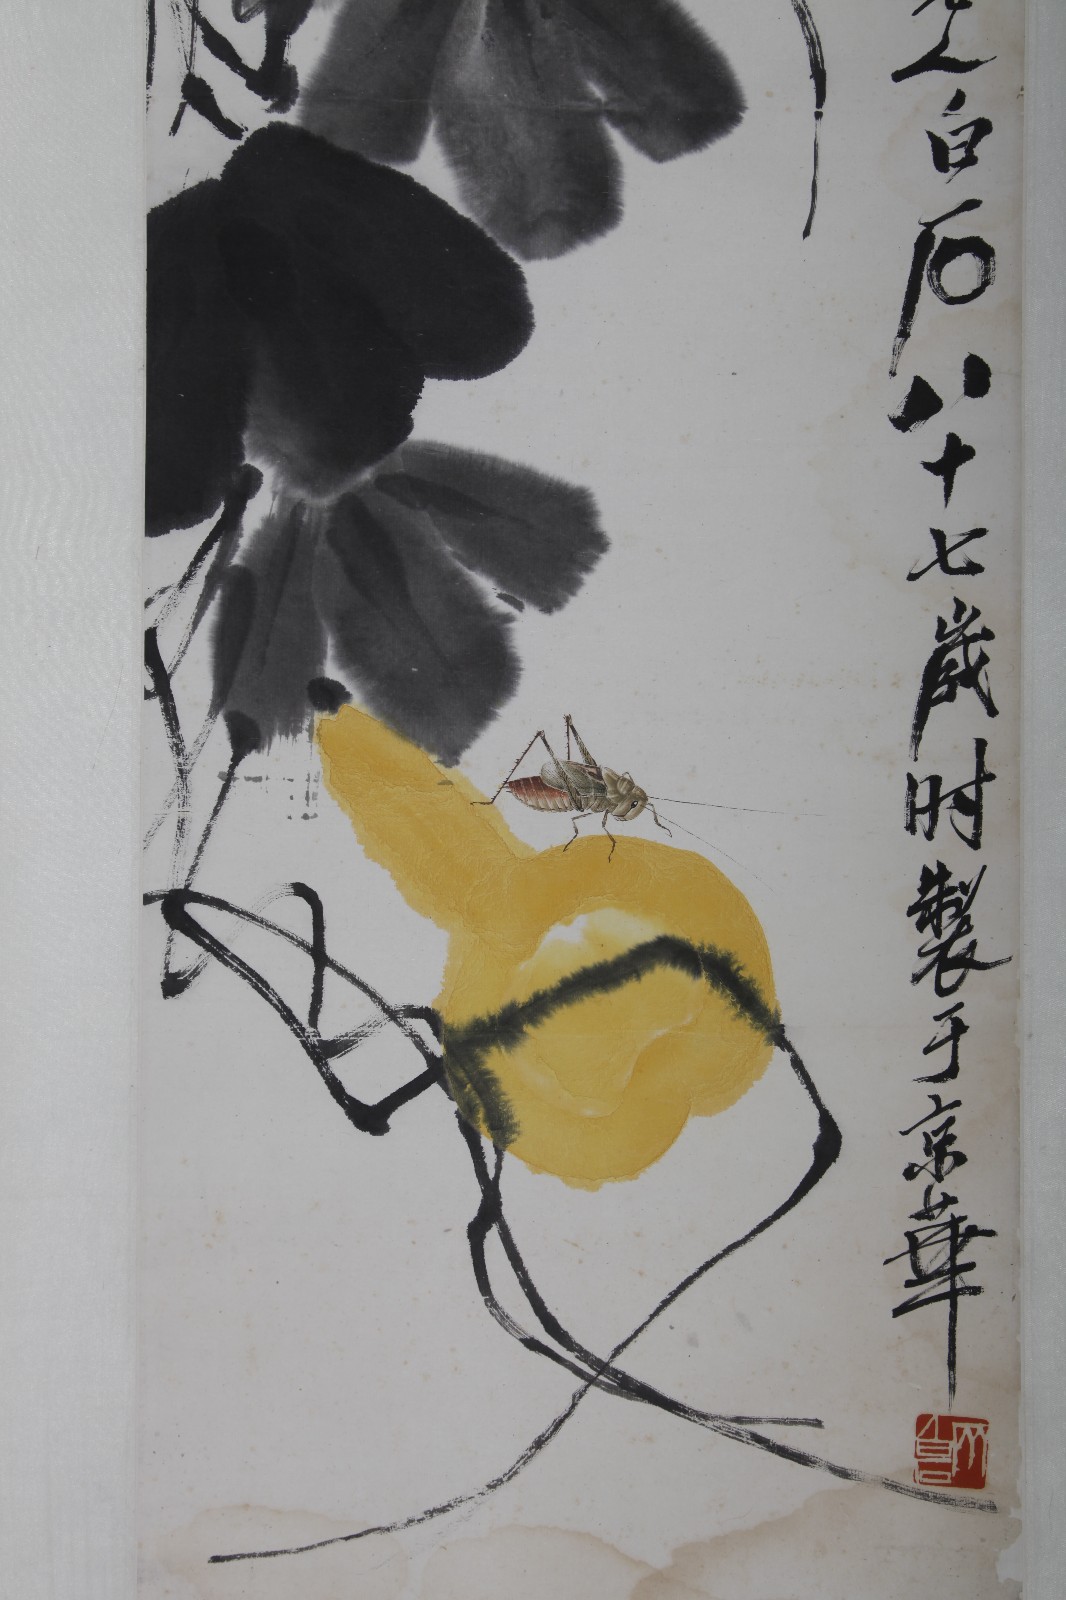 人白石八十七歲时製于京華